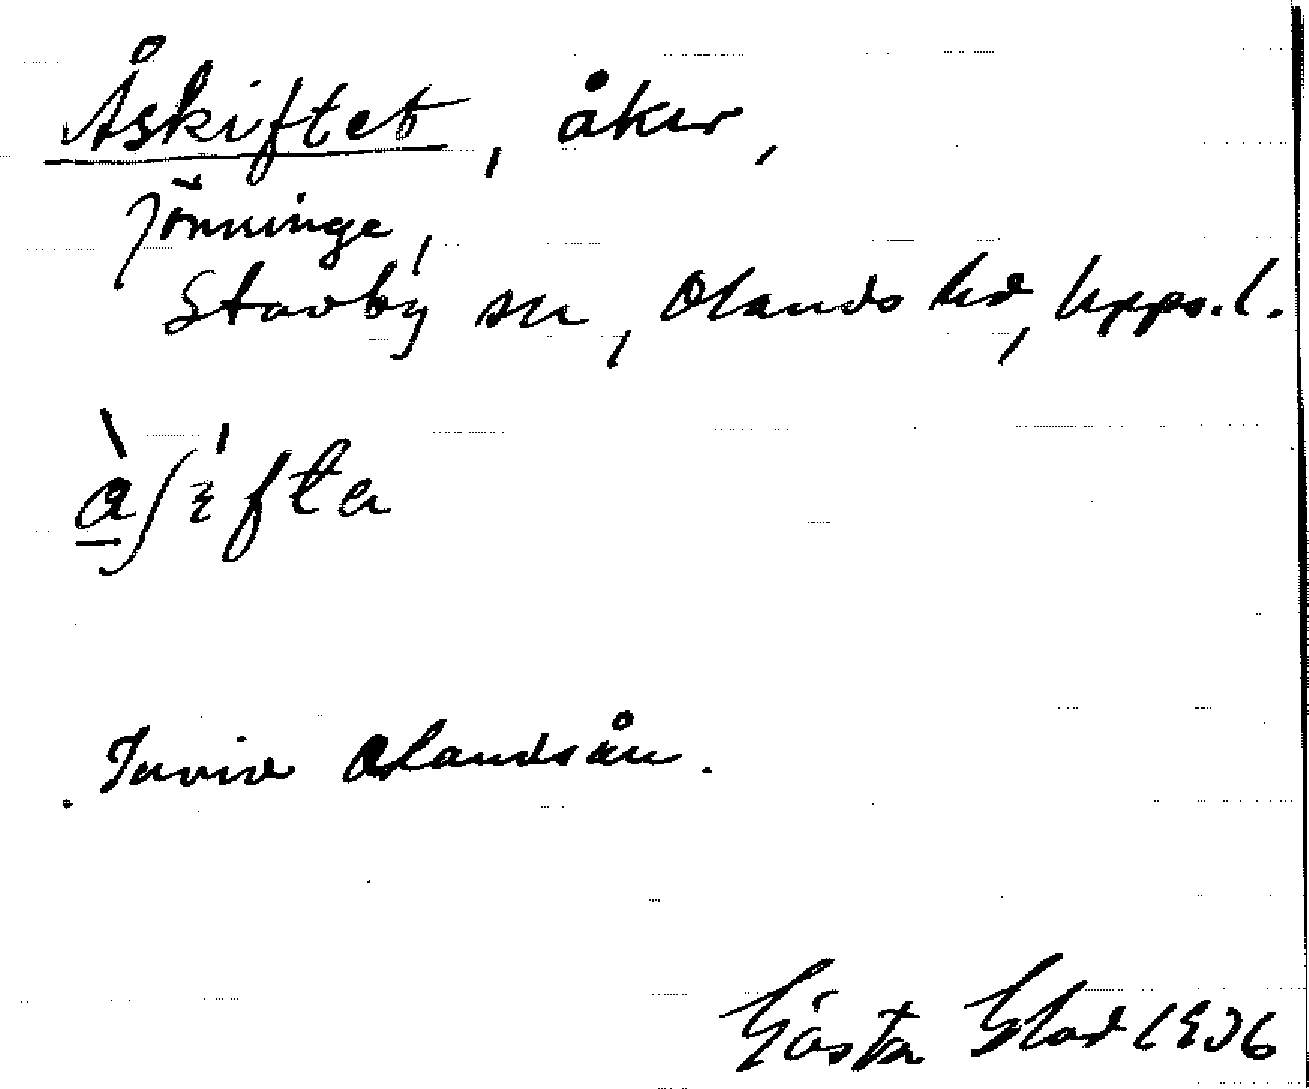 Åskiftet, åker,
Jönninge,
Stavby sn, Olands hd, Upps.l.
Invid Olandsån.
Gösta Glad 1936